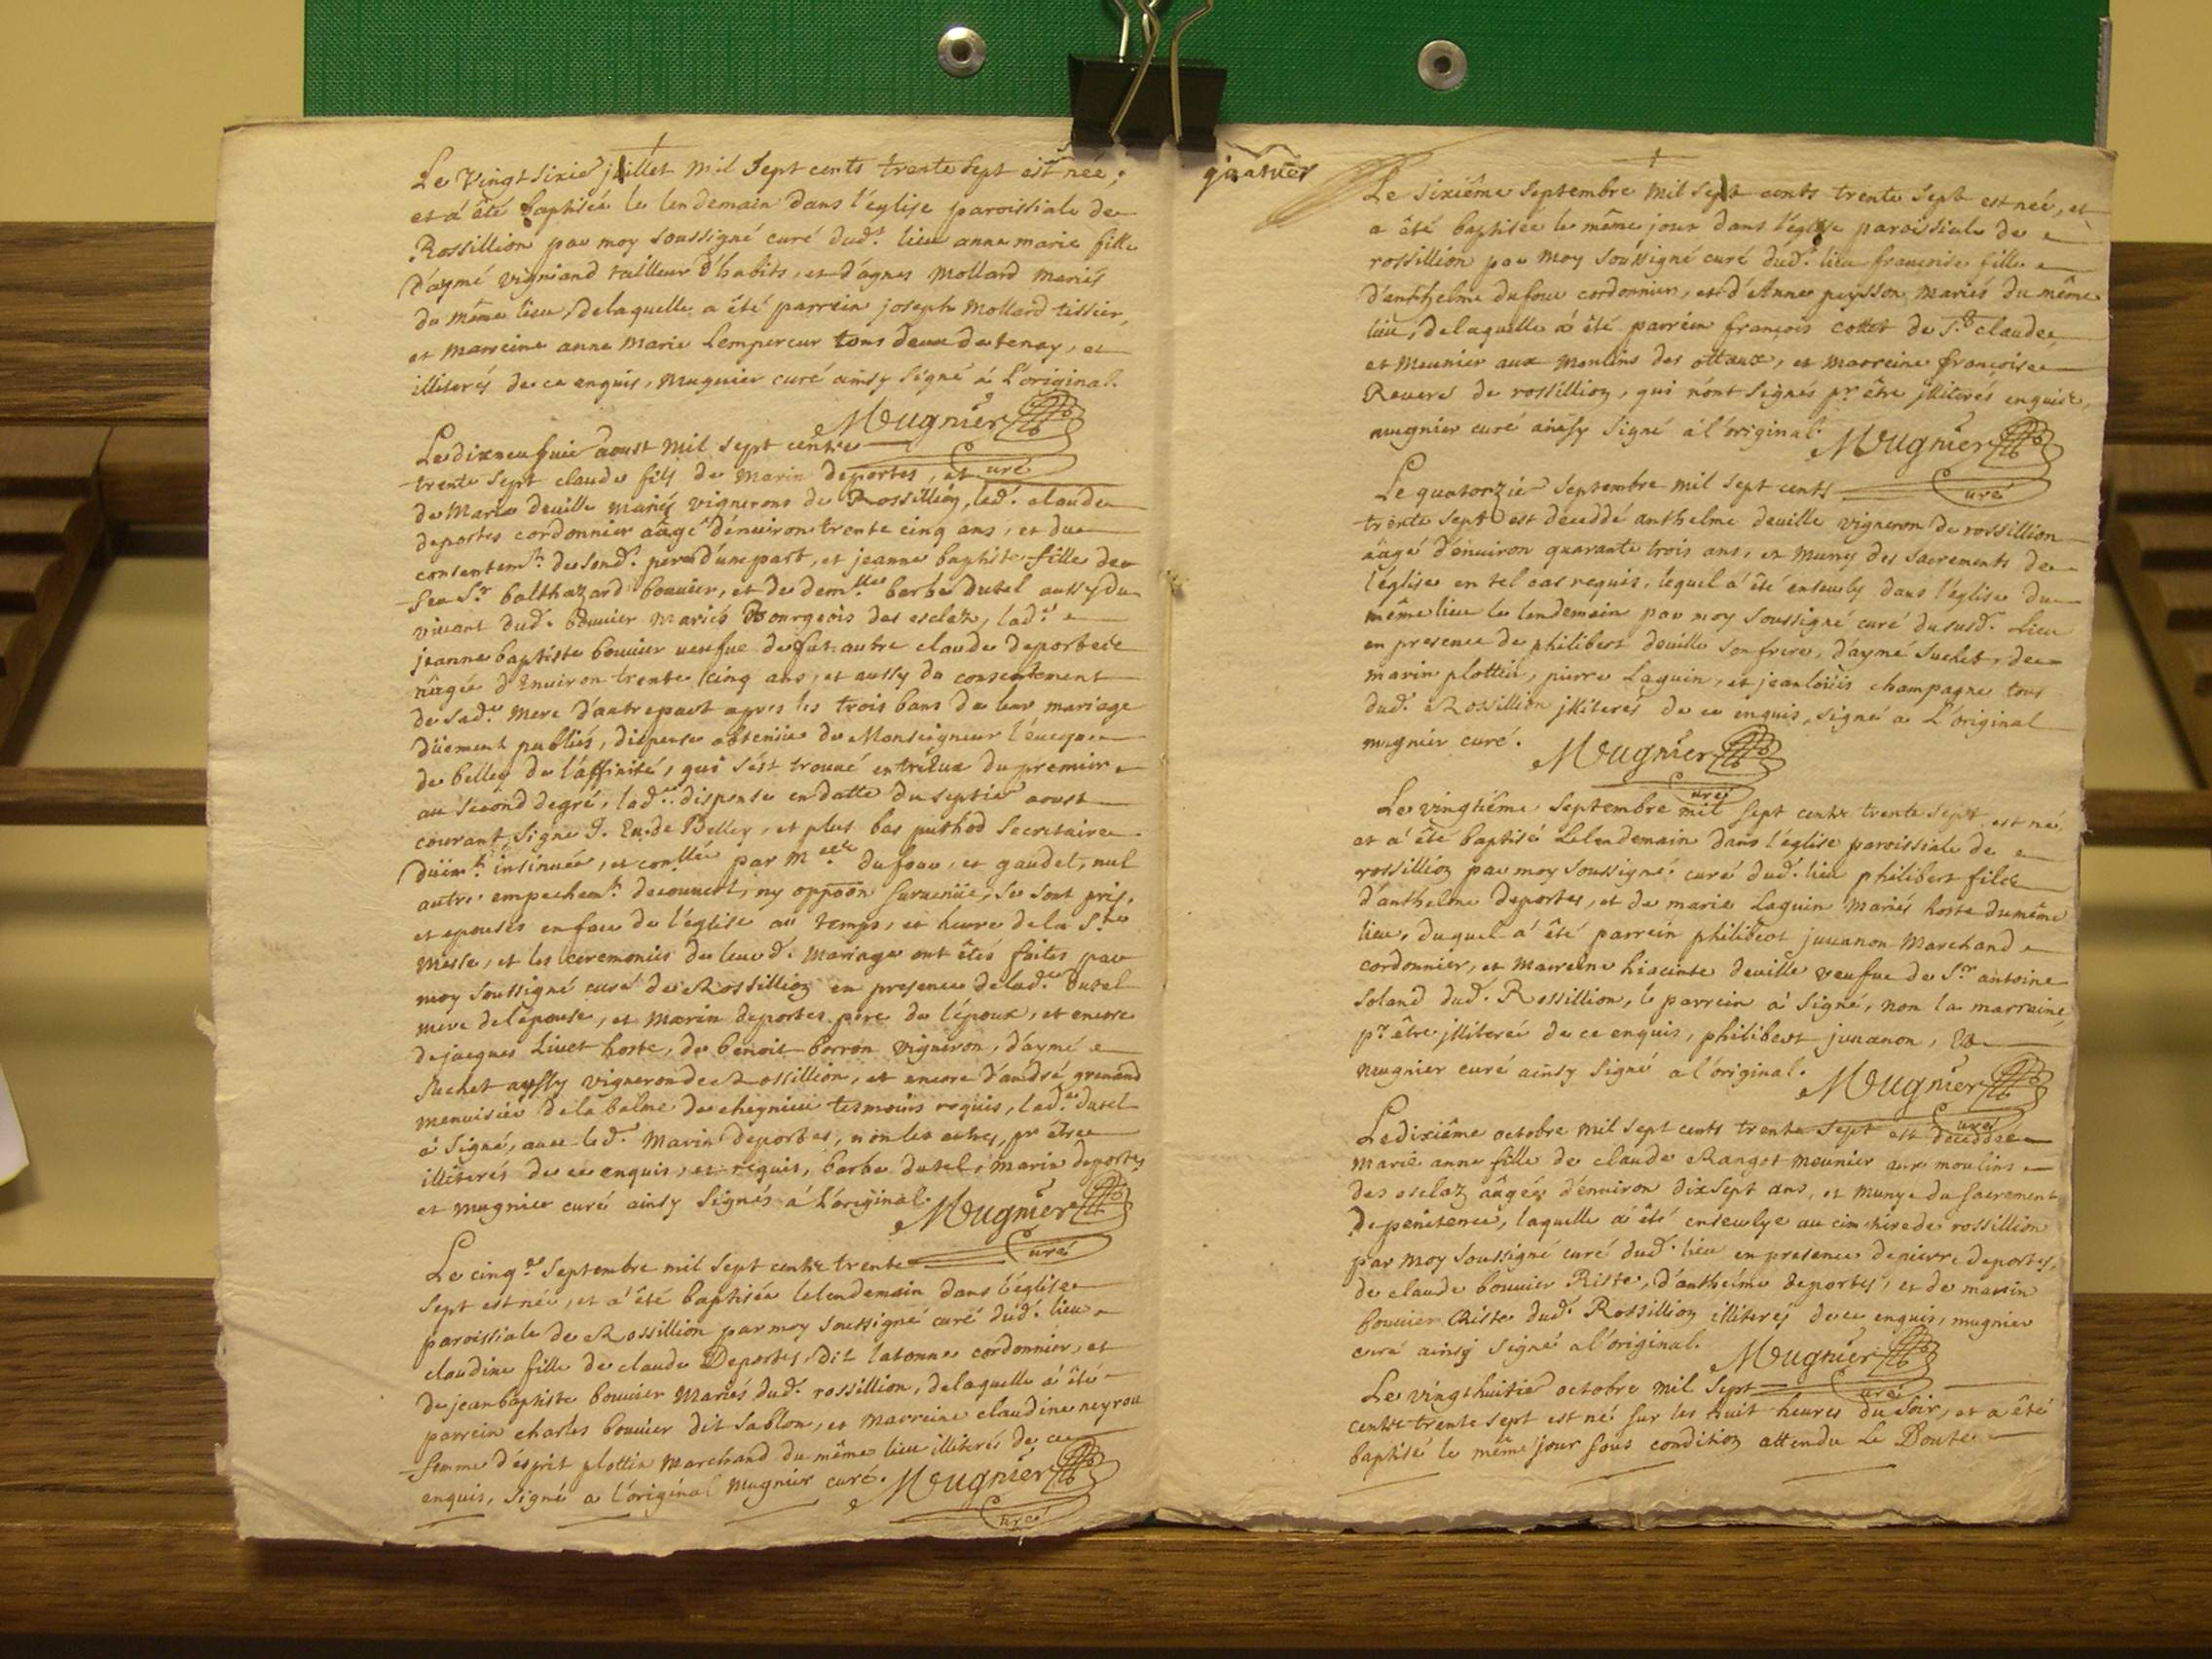 Le Vingt sixié juillet mil Sept cents trente sept est née,
et a été baptisée le lendemain dans l'église paroissiale de
Rossillion par moy soussigné curé dud.t lieu anne marie fille
d'aymé vigniand tailleur d'habits, et d'agnes mollard mariés
du même lieu, delaquelle a été parrein joseph mollard tissier,
et marreine anne marie Lempereur tous deux de tenay, et
illiterés de ce enquis, mugnier curé ainsy signé à L'original.
Mugnier
curé
Le dixneufvié aoust mil sept cents
trente sept claude fils de marin deportes, et
de Marie deuille mariés vignerons de Rossillion, led. claude
deportes cordonnier aâgé d'énuiron trente cinq ans, et du
consentem.t de sond. pere d'une part, et jeanne baptiste fille de
feu S.r balthazard bouuier, et de dem.lle barbe dutel aussy du
viuant dud. bouuier mariés Bourgeois des esclaz, lad.e
jeanne baptiste bouuier ueufue de autre claude deportes
aâgée d'Enuiron trente cinq ans, et aussy du consentement
de sad.e mere d'autre part apres les trois bans de leur mariage
düement publiés, dispense obtenüe de Monseigneur l'éuêque
de belley de l'affinité, qui s'ést trouué entr'Eux du premier
au second degré, lad.e dispense en datte du septié aoust
courant, signé J. Eu. de Belley, et plus bas puthod Secretaire
düem.t insinuée, et par m dufour, et gaudet, nul
autre empechem.t decouuert, ny oppoôn suruenüe, se sont pris,
et epousés en face de l'église au temps, et heure de la S.te
messe, et les ceremonies de leurd. mariage ont étés faites par
moy soussigné curé de Rossillion en presence de lad.e dutel
mere de l'épouse, et marin deportes pere de l'époux, et encore
de jacques Liuet hoste, de benoit borron vigneron, d'aymé
suchet aussy vigneron de Rossillion, et encore d'andré grenand
menuisier de la balme de cheynieu tesmoins requis, lad.e dutel
a signé, auec led. marin deportes, non les autres, pr être
illiterés de ce enquis, et requis, barbe dutel, marin deportes
et mugnier curé ainsy signés à L'original.
Mugnier
curé
Le cinq.e Septembre mil sept cents trente
sept est née, et a été baptisée le lendemain dans l'église
paroissiale de Rossillion par moy soussigné curé dud. lieu
claudine fille de claude Deportes, dit latonne cordonnier, et
de jeanbaptiste bouuier mariés dud. rossillion, delaquelle a été
parrein charles bouuier dit sablon, et marreine claudine neyrou
femme d'ésprit plottin marchand du même lieu illiterés de ce
enquis, signé a l'original mugnier curé. Mugnier
curé
Le sixième Septembre mil sept cents trente sept est née, et
a été baptisée le même jour dans l'église paroissiale de
rossillion par moy soussigné curé dud. lieu francoise fille
d'anthelme dufour cordonnier, et d'Anne peysson mariés du même
lieu, delaquelle a été parrein françois cottet de S.t claude
et meunier aux moulins des ottaux, et marreine françoise
Reuere de rossillion, qui n'ont signés pr être jlliterés enquis,
mugnier curé ainsy signé a l'original. Mugnier
curé
Le quatorzié Septembre mil sept cents
trente sept est deceddé anthelme deuille vigneron de rossillion
aâgé d'énuiron quarante trois ans, et muny des sacrements de
l'église en tel cas requis, lequél a été enseuely dans l'église du
même lieu le lendemain par moy soussigné curé du susd. Lieu
en presence de philibert deuille son frere, d'aymé Suchet, de
marin plottin, pierre Laguin, et jean loüis champagne tous
dud. Rossillion jlliterés de ce enquis, signé a L'original
mugnier curé. Mugnier
curé
Le vingtiéme Septembre mil sept cents trente sept est né,
et a été baptisé Le lendemain dans l'église paroissiale de
rossillion par moy soussigné curé dud. lieu philibert fils
d'anthelme deportes, et de marie Laguin mariés hoste du même
lieu, duquel a été parrein philibert juuanon marchand
cordonnier, et marreine hiacinte deuille veufue de S.r antoine
Soland dud. Rossillion, le parrein a signé, non la marreine,
pr être jlliterée de ce enquis, philibert juuanon, Et
mugnier curé ainsy signé a l'original. Mugnier
curé
Le dixiéme octobre mil sept cents trente sept est deceddée
marie anne fille de claude Rangot meunier aux moulins
des esclaz aâgée d'énuiron dix sept ans, et munye du sacrement
de penitence, laquelle a été enseuelye au cimetiere de rossillion
par moy soussigné curé dud. lieu en presence de pierre deportes,
de claude bouuier Riste, d'anthelme deportes, et de marin
bouuier Riste dud. Rossillion illiterés de ce enquis, mugnier
curé ainsy signé a l'original. Mugnier
curé
Le vingthuitié octobre mil sept
cents trente sept est né sur les huit heures du soir, et a été
baptisé le même jour sous condition attendu Le Doute